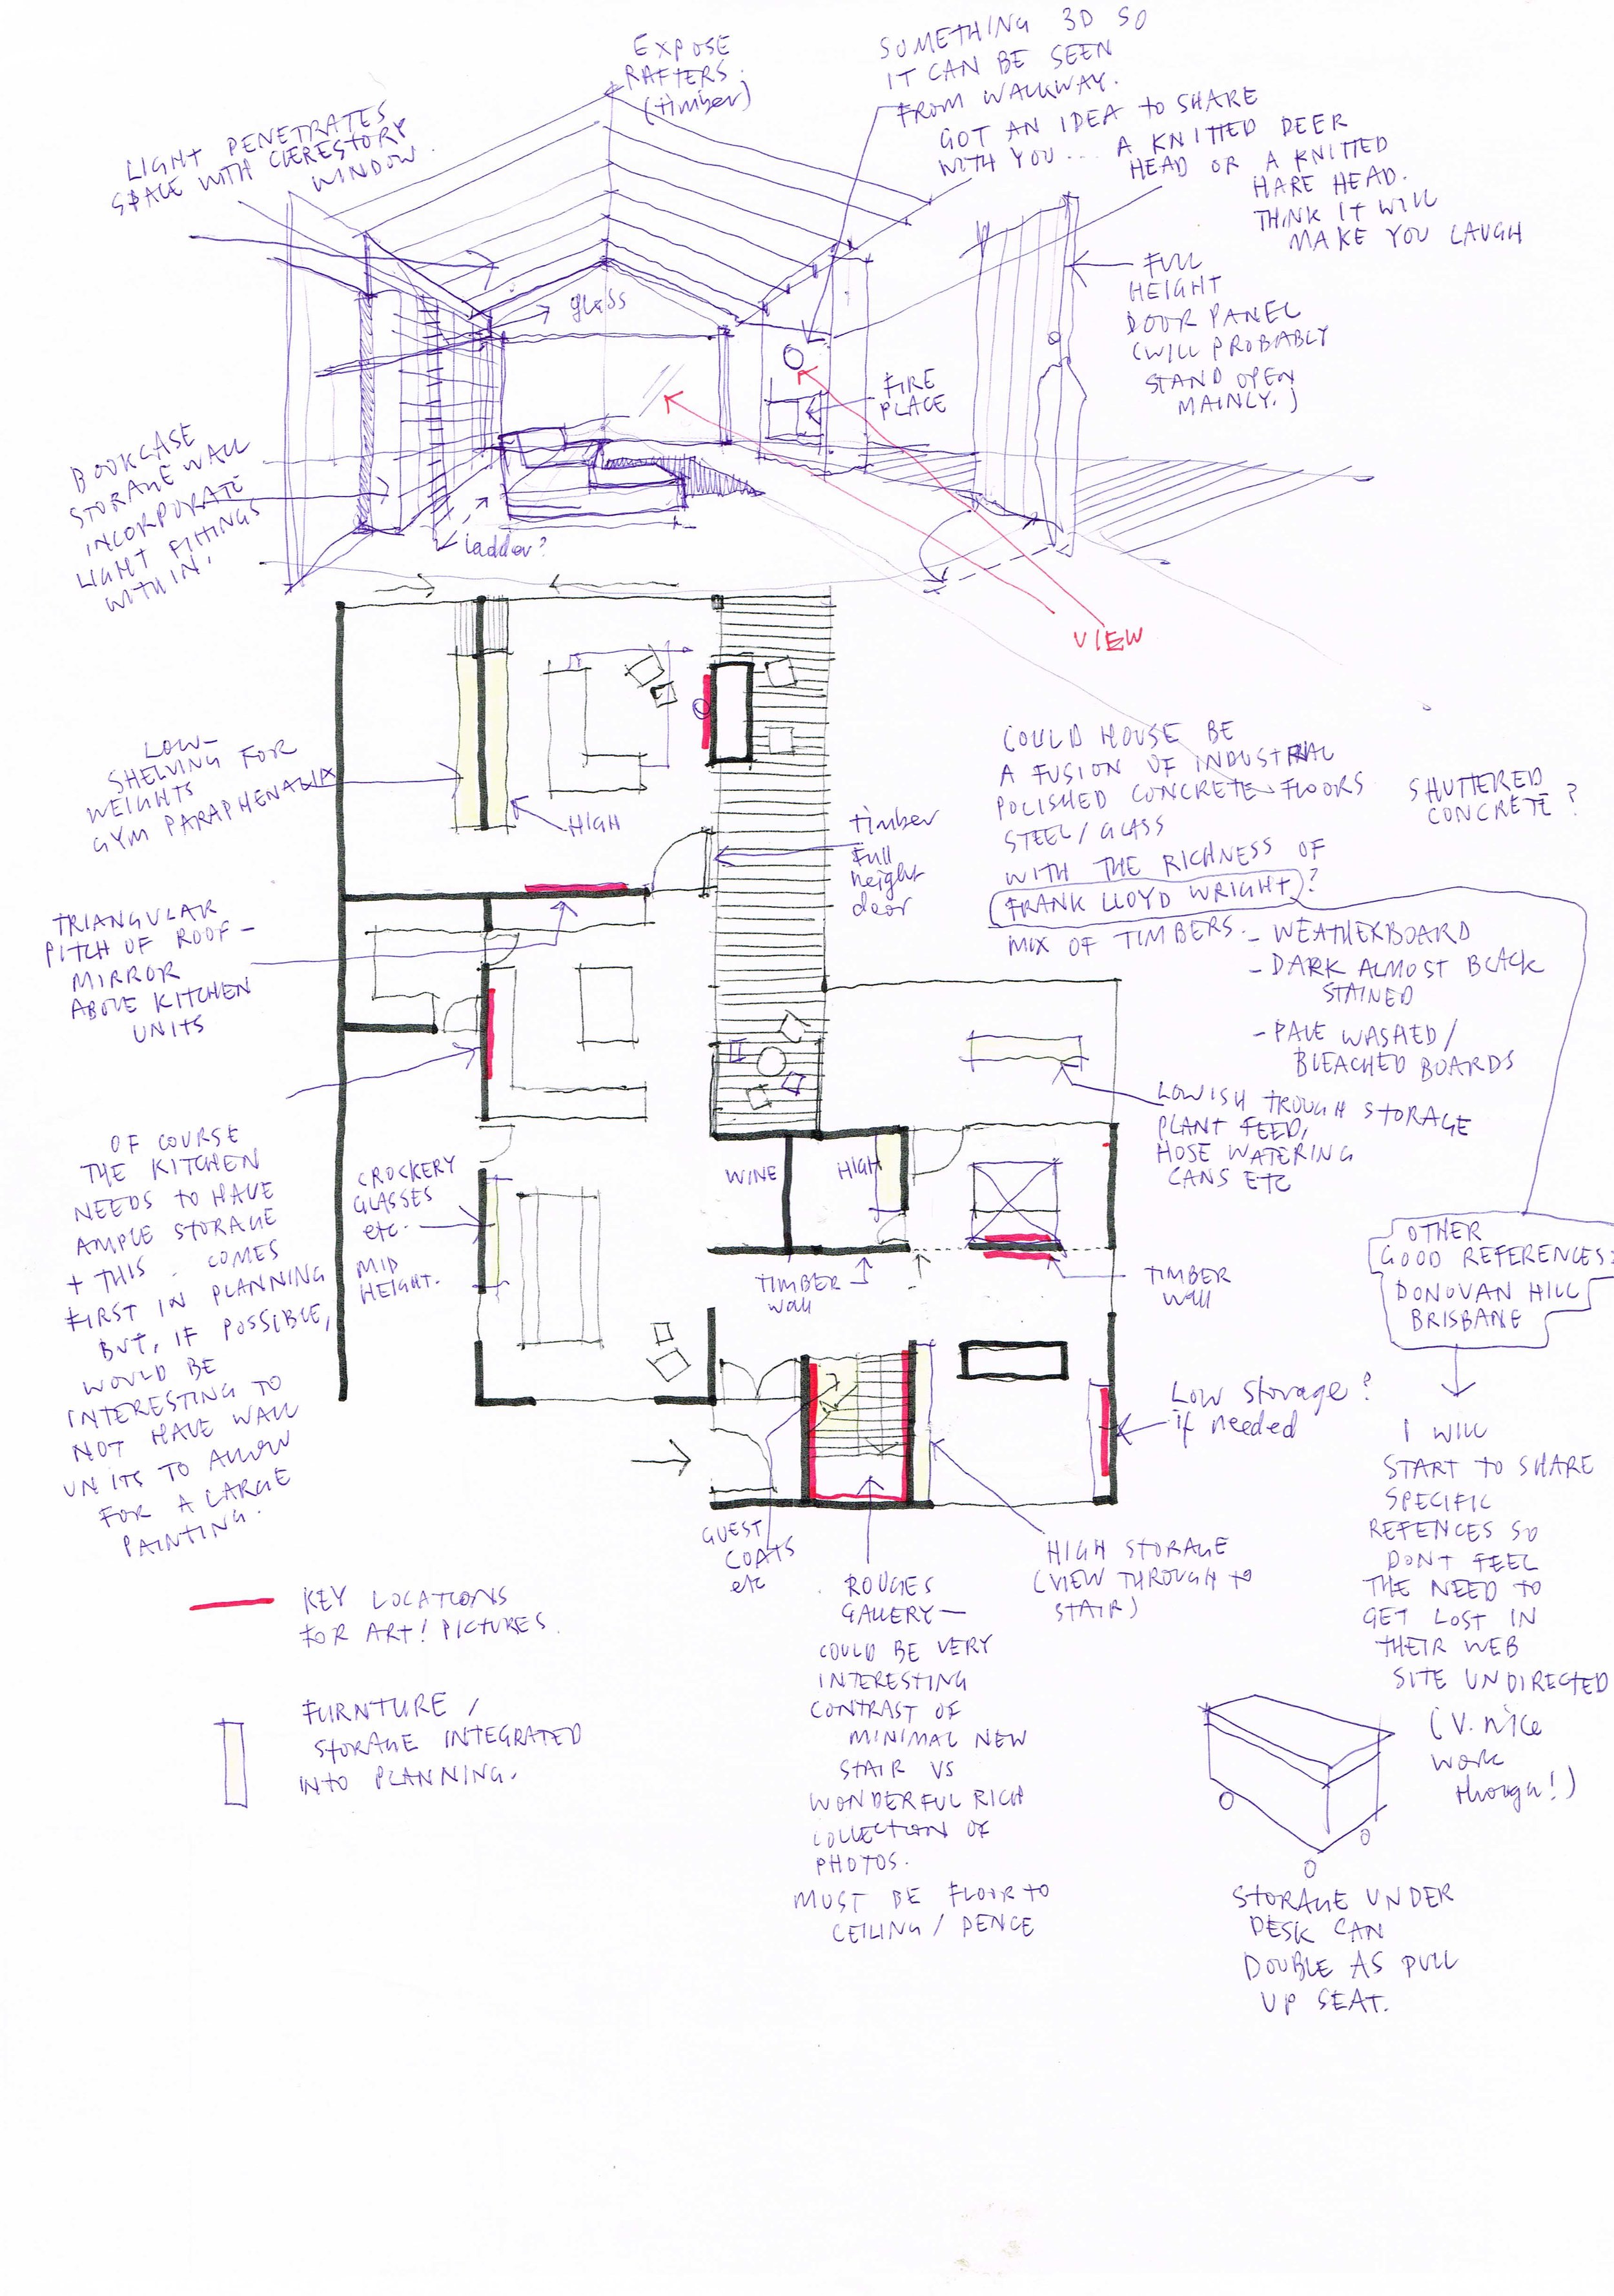 EXPOSE
RAFTERS.
(timber)
SOMETHING 3D SO
IT CAN BE SEEN
FROM WALKWAY.
GOT AN IDEA to SHARE
WITH YOU... A KNITTED DEER
HEAD OR A KNITTED
HARE HEAD.
THINK IT WILL
MAKE YOU LAUGH
LIGHT PENETRATES
SPACE WITH CLERESTORY
WINDOW.
glass
FULL
HEIGHT
DOOR PANEL
(WILL PROBABLY
STAND OPEN
MAINLY.)
FIRE
PLACE
BOOKCASE
STORAGE WALL
INCORPORATE
LIGHT FITTINGS
WITHIN!
ladder?
VIEW
LOW-
SHELVING FOR
WEIGHTS
GYM PARAPHENALIA
HIGH
timber
full
height
door
COULD HOUSE BE
A FUSION OF INDUSTRIAL
POLISHED CONCRETE FLOORS
STEEL/GLASS
WITH THE RICHNESS OF
FRANK LLOYD WRIGHT?
MIX OF TIMBERS. - WEATHERBOARD
- DARK ALMOST BLACK
STAINED
- PALE WASHED/
BLEACHED BOARDS
SHUTTERED
CONCRETE?
TRIANGULAR
PITCH OF ROOF -
MIRROR
ABOVE KITCHEN
UNITS
LOWISH TROUGH STORAGE
PLANT FEED,
HOSE WATERING
CANS ETC
OF COURSE
THE KITCHEN
NEEDS TO HAVE
AMPLE STORAGE
+ THIS COMES
FIRST IN PLANNING
BUT, IF POSSIBLE,
WOULD BE
INTERESTING TO
NOT HAVE WALL
UNITS TO ALLOW
FOR A LARGE
PAINTING.
CROCKERY
GLASSES
etc.
MID
HEIGHT.
WINE
HIGH
TIMBER
wall
TIMBER
wall
OTHER
GOOD REFERENCES:
DONOVAN HILL
BRISBANE
I WILL
START TO SHARE
SPECIFIC
REFENCES SO
DONT FEEL
THE NEED TO
GET LOST IN
THEIR WEB
SITE UNDIRECTED
(V. nice
work
though!)
LOW storage?
if needed
GUEST
COATS
etc
ROUGES
GALLERY -
COULD BE VERY
INTERESTING
CONTRAST OF
MINIMAL NEW
STAIR VS
WONDERFUL RICH
COLLECTION OF
PHOTOS.
MUST BE FLOOR TO
CEILING / DENCE
HIGH STORAGE
(VIEW THROUGH TO
STAIR)
KEY LOCATIONS
FOR ART! PICTURES.
FURNTURE /
STORAGE INTEGRATED
INTO PLANNING.
STORAGE UNDER
DESK CAN
DOUBLE AS PULL
UP SEAT.